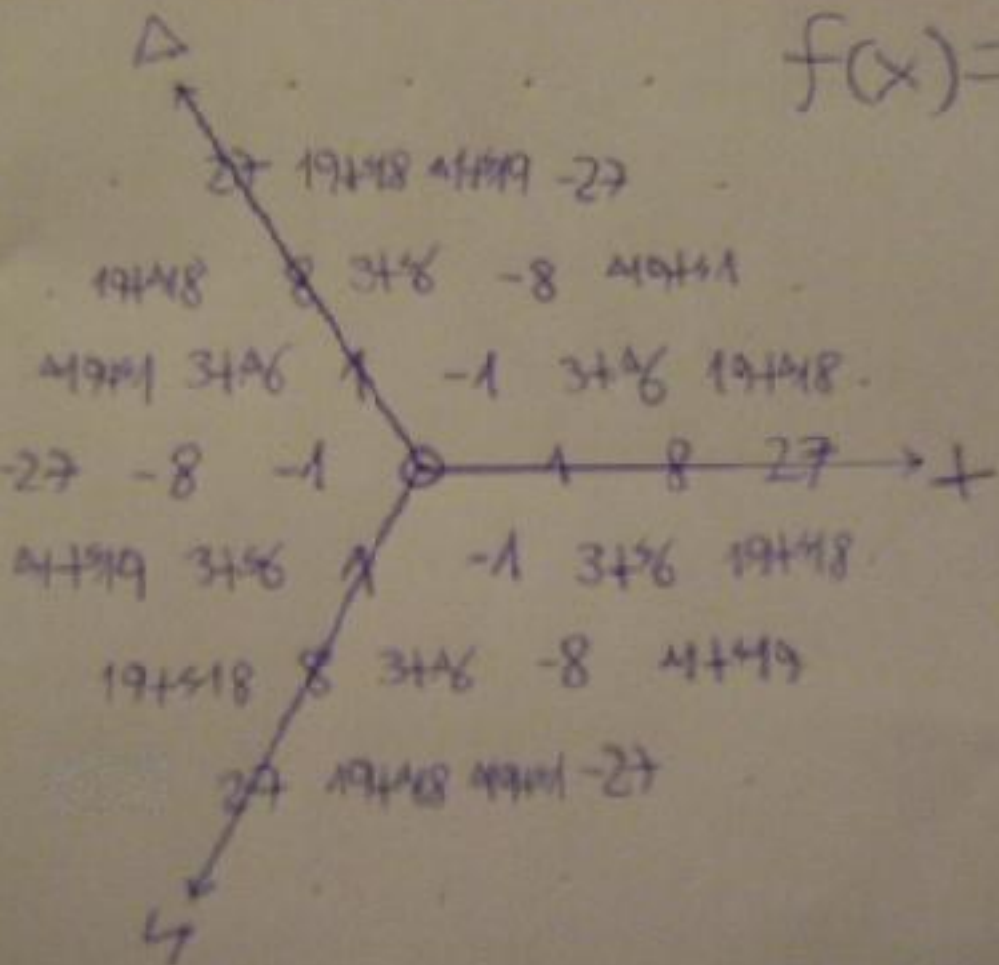 △
f(x)=
27 19+418 △1+419 -27
19+△18 8 3+46 -8 △19+41
△19+41 3+△6 1 -1 3+△6 19+△18
-27 -8 -1 1 8 27 +
△1+419 3+46 1 -1 3+46 19+418
19+418 8 3+△6 -8 △1+419
27 19+△18 △19+41 -27
4